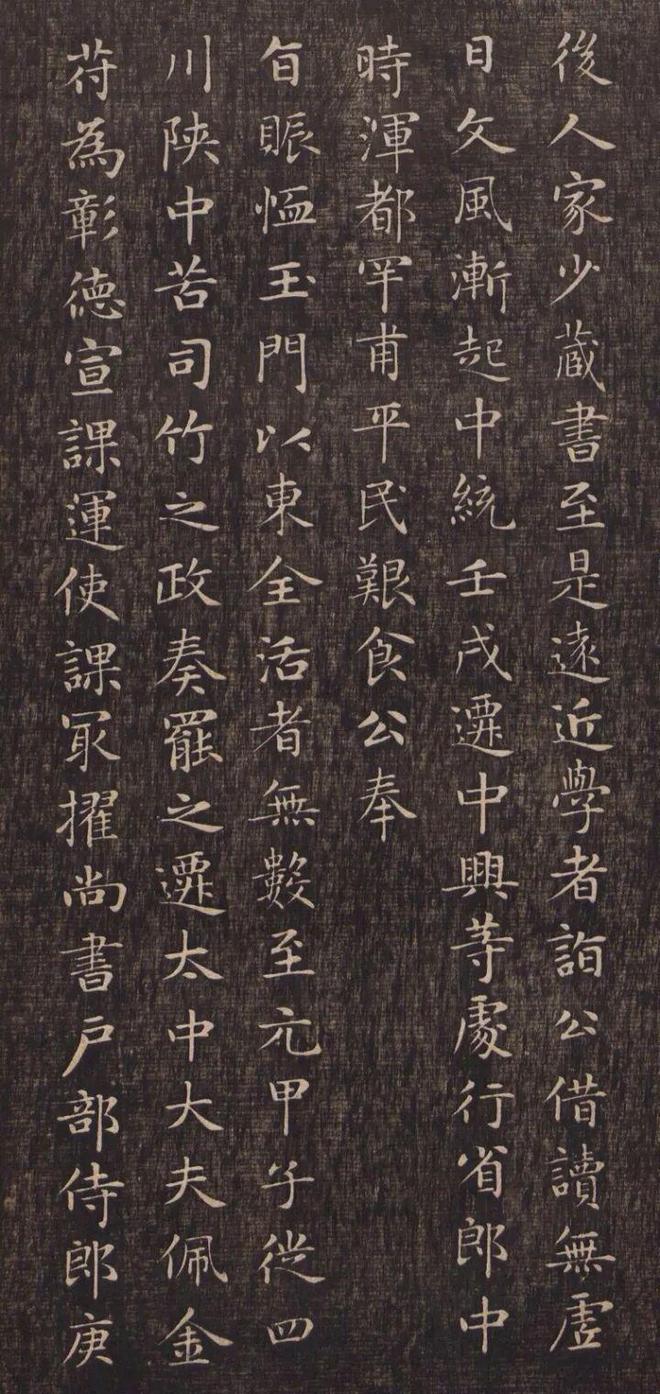 後人家少蔵書至是遠近學者詣公借讀無虛
日文風漸起中統壬戌遷中興等處行省郎中
時渾都罕甫平民艱食公奉
旨賑恤玉門以東全活者無數至元甲子從四
川陝中苦司竹之政奏罷之遷太中大夫佩金
符為彰徳宣課運使課冣擢尚書戶部侍郎庚